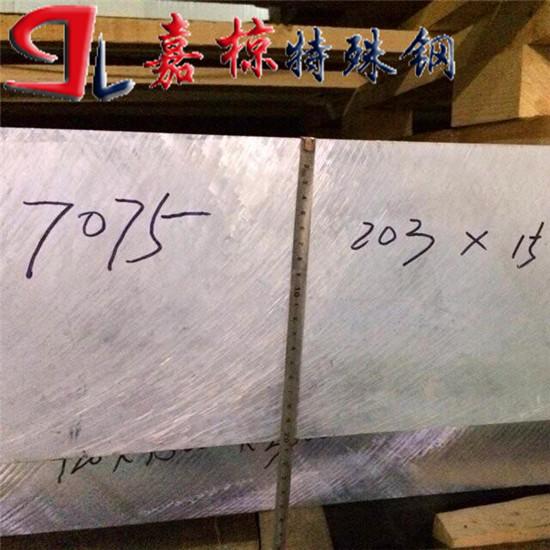 嘉椋特殊钢
7075
203 × 15